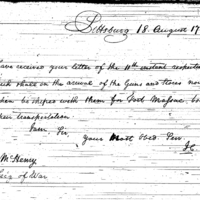 Pittsburg 18 August 17
have received your letter of the 11th instant respecting
such share on the arrival of the Guns and Stores now
then be shiped with them for Fort Massac
their transportation
I am Sir
your Most Obed. Ser
McHenry
Secy of War